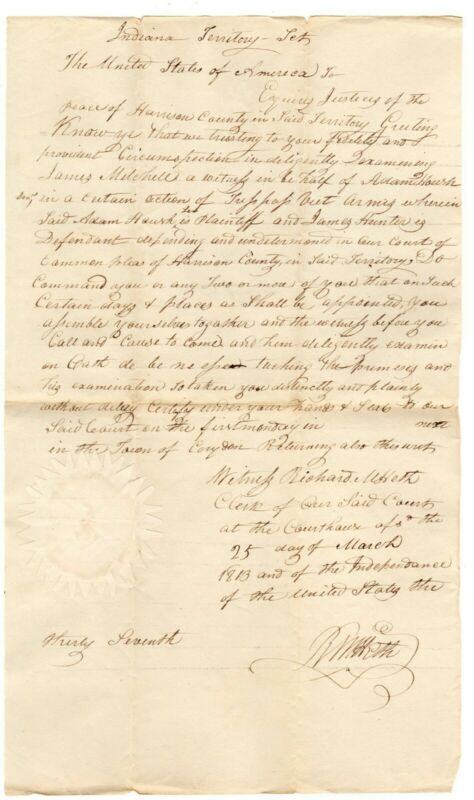 Indiana Territory - Sct
The United States of America To
Equires Justices of the
peace of Harrison County in Said Territory Greeting
Know ye that we trusting to your fidelity and
provident Circumspection in deligently Examening
James Mitchell a witness in be half of Adam Housh
in a certain action of Tresspass Viet Armes wherein
Said Adam Housk is Plaintiff and James Hunter is
Defendant depending and undetermoned in our Court of
Common pleas of Harrison County in Said Territory; Do
Command you or any Two or more of you that on Such
Certain days & places as Shall be appointed, you
assemble yourselves togather and the witness before you
Call and Cause to come and him deligently examin
on Oath de be ne esse tuching the premises and
his examination So taken you distinctly and plainly
without delay Certify under your hands & Seals to our
Said Court on the first monday in next
in the Town of Corydon Returning also this writ
Witness Richard M Heth
Clerk of Our Said Court
at the Courthouse afsd the
25 day of March
1813 and of the Independance
of the United States the
therty Seventh
R M Heth